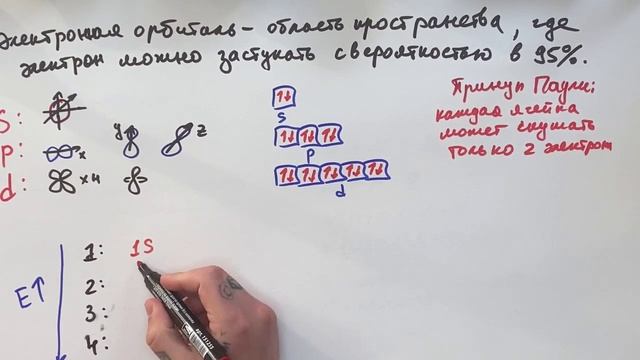 Электронная орбиталь – область пространства, где
электрон можно застукать с вероятностью в 95%.
Принцип Паули:
каждая ячейка
может слушать
только 2 электрон
S:
P: x y z
d: x4
S
P
d
E↑
1: 1S
2:
3:
4: